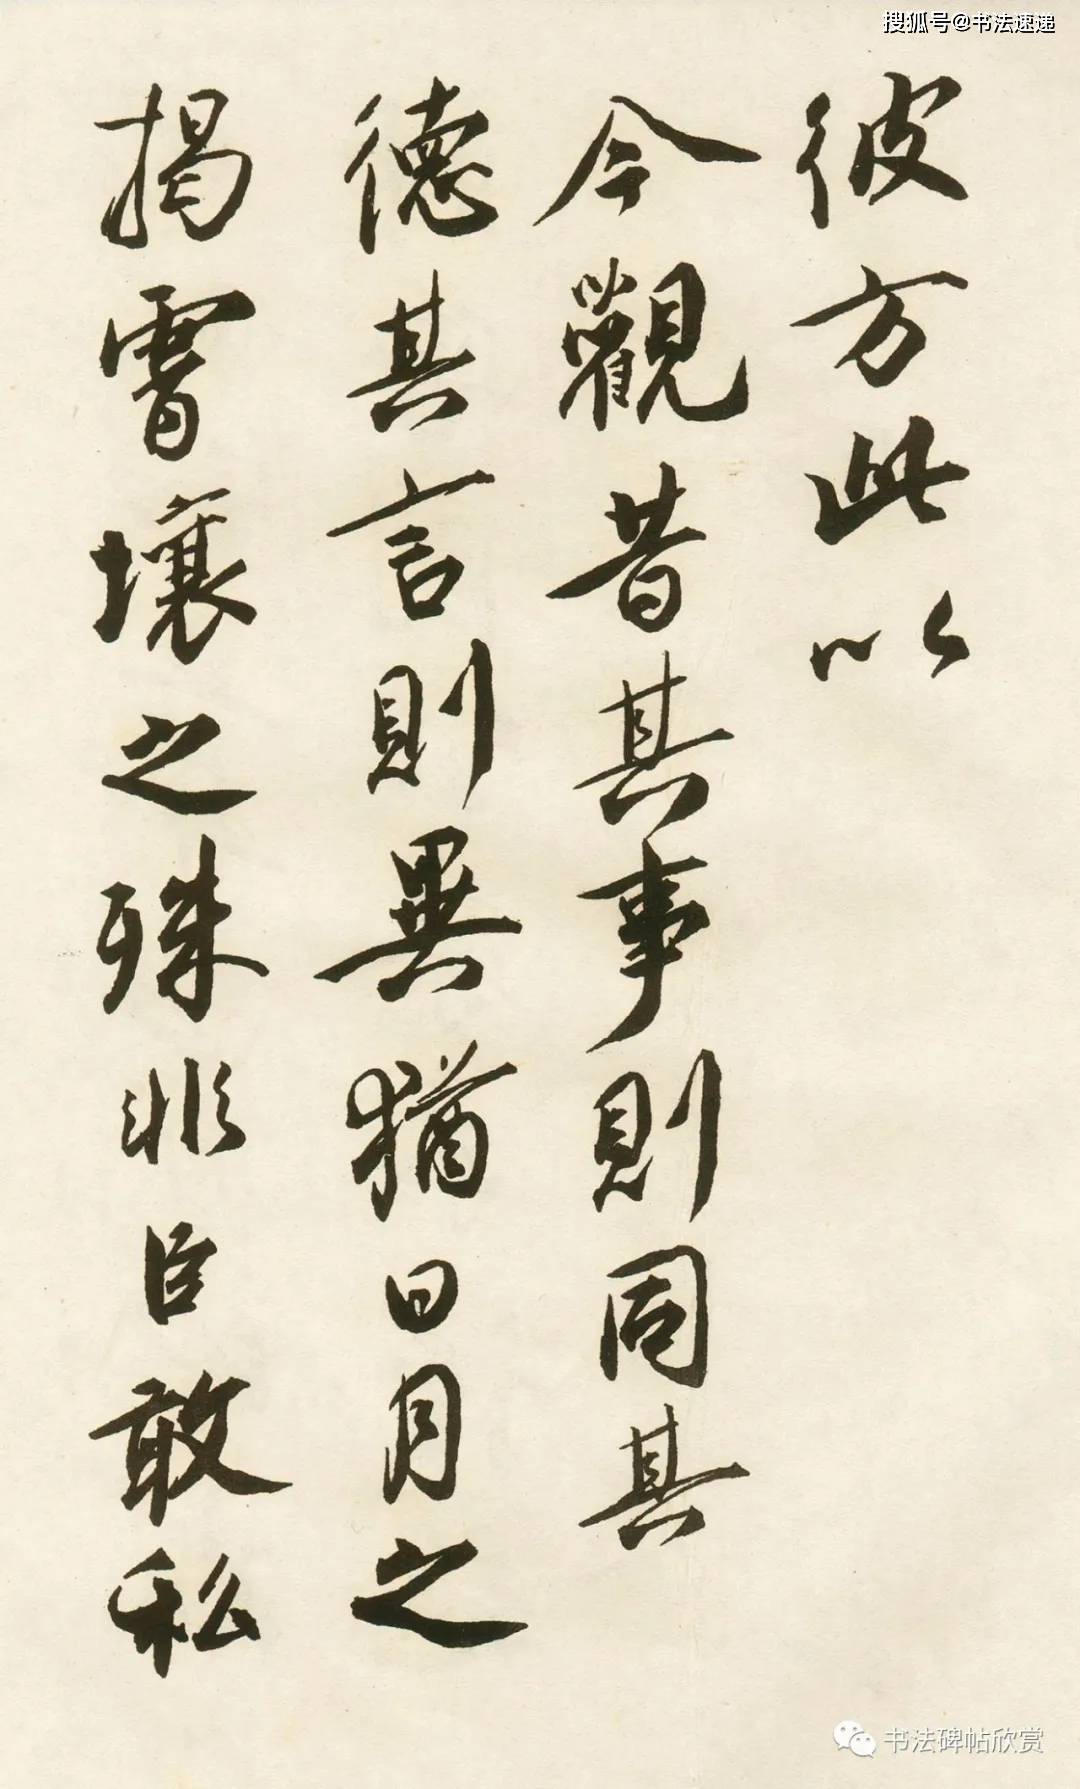 搜狐号@书法速递
彼方此以
今觀昔其事則同其
德其言則異猶日月之
揭霄壤之殊非臣敢私
书法碑帖欣赏